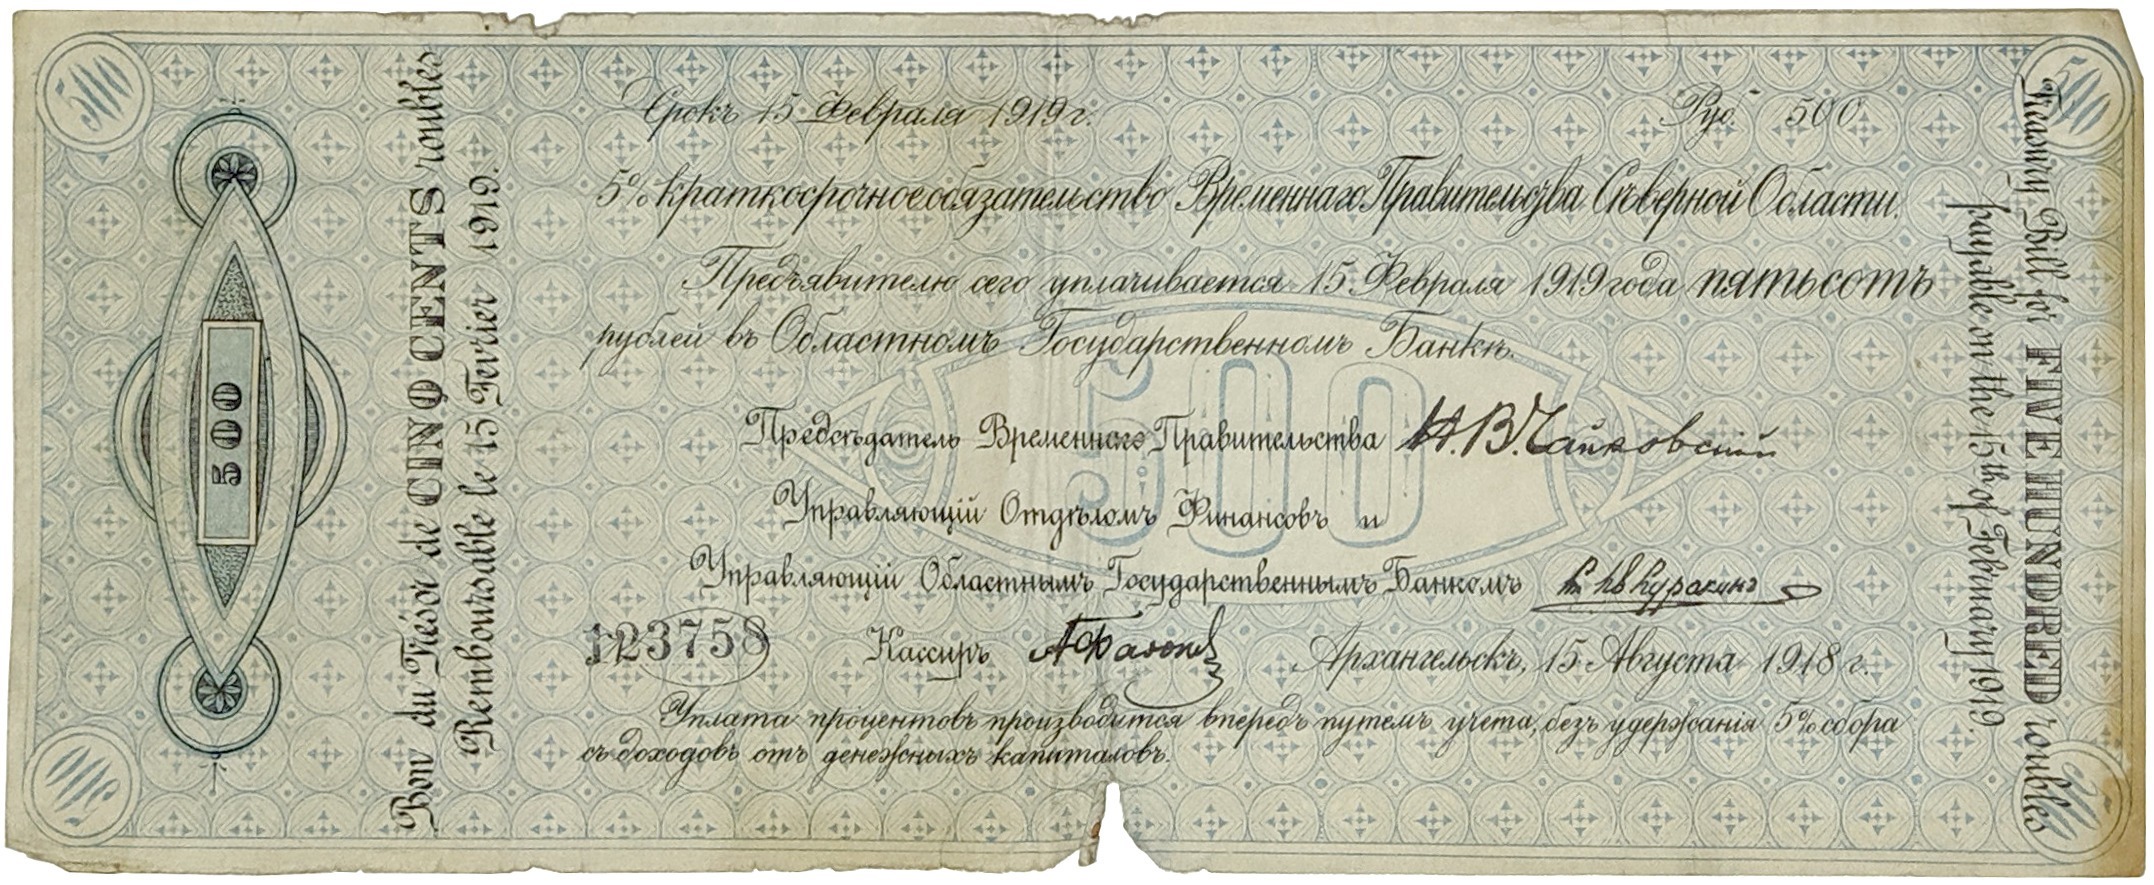 500
500
Срокъ 15 Февраля 1919 г.
Руб. 500
5% краткосрочное обязательство Временнаго Правительства Съверной Области.
Предъявителю сего уплачивается 15 Февраля 1919 года пятьсотъ
рублей въ Областномъ Государственномъ Банкѣ.
500
Предсѣдатель Временнаго Правительства Н. В. Чайковскій
Управляющій Отдѣломъ Финансовъ и
Управляющій Областнымъ Государственнымъ Банкомъ
123758
Кассиръ
Архангельскъ, 15 Августа 1918 г.
Уплата процентовъ производится впередъ путемъ учета, безъ удержанія 5% сбора
съ доходовъ отъ денежныхъ капиталовъ.
500
Bon du Trésor de CINQ CENTS roubles
Remboursable le 15 Fevrier 1919.
Treasury Bill for FIVE HUNDRED roubles
payable on the 15th of February 1919.
500
500